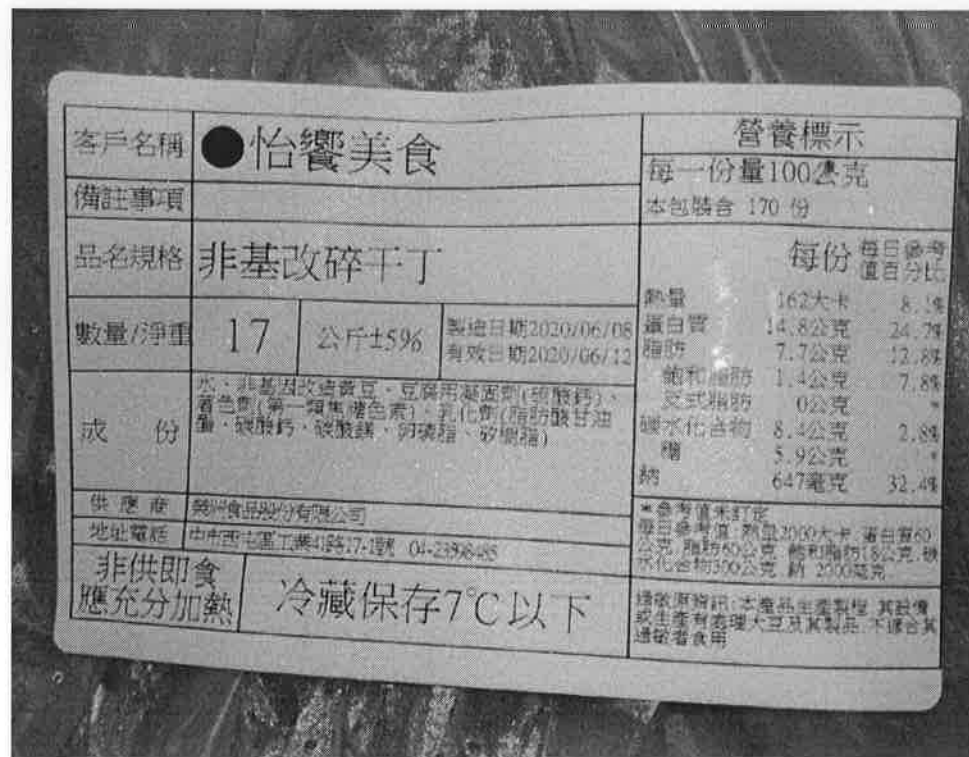 客戶名稱 ●怡饗美食
備註事項
品名規格 非基改碎干丁
數量/淨重 17 公斤±5% 製造日期2020/06/08
有效日期2020/06/12
成份 水、非基因改造黃豆、豆腐用凝固劑(硫酸鈣)、
著色劑(第一類焦糖色素)、乳化劑(脂肪酸甘油
酯、碳酸鈣、碳酸鎂、卵磷脂、矽樹脂)
供應商 食品股份有限公司
地址電話 中市西屯區工業41路17-1號 04-23598485
非供即食
應充分加熱
冷藏保存7℃以下
營養標示
每一份量100公克
本包裝含 170 份
每份 每日參考
值百分比
熱量 162大卡 8.1%
蛋白質 14.8公克 24.7%
脂肪 7.7公克 12.8%
飽和脂肪 1.4公克 7.8%
反式脂肪 0公克 *
碳水化合物 8.4公克 2.8%
糖 5.9公克 *
鈉 647毫克 32.4%
*參考值未訂定
每日參考值:熱量2000大卡 蛋白質60
公克 脂肪60公克 飽和脂肪18公克 碳
水化合物300公克 鈉 2000毫克
過敏原資訊:本產品生產製程 其設備
或生產有處理大豆及其製品 不適合其
過敏者食用